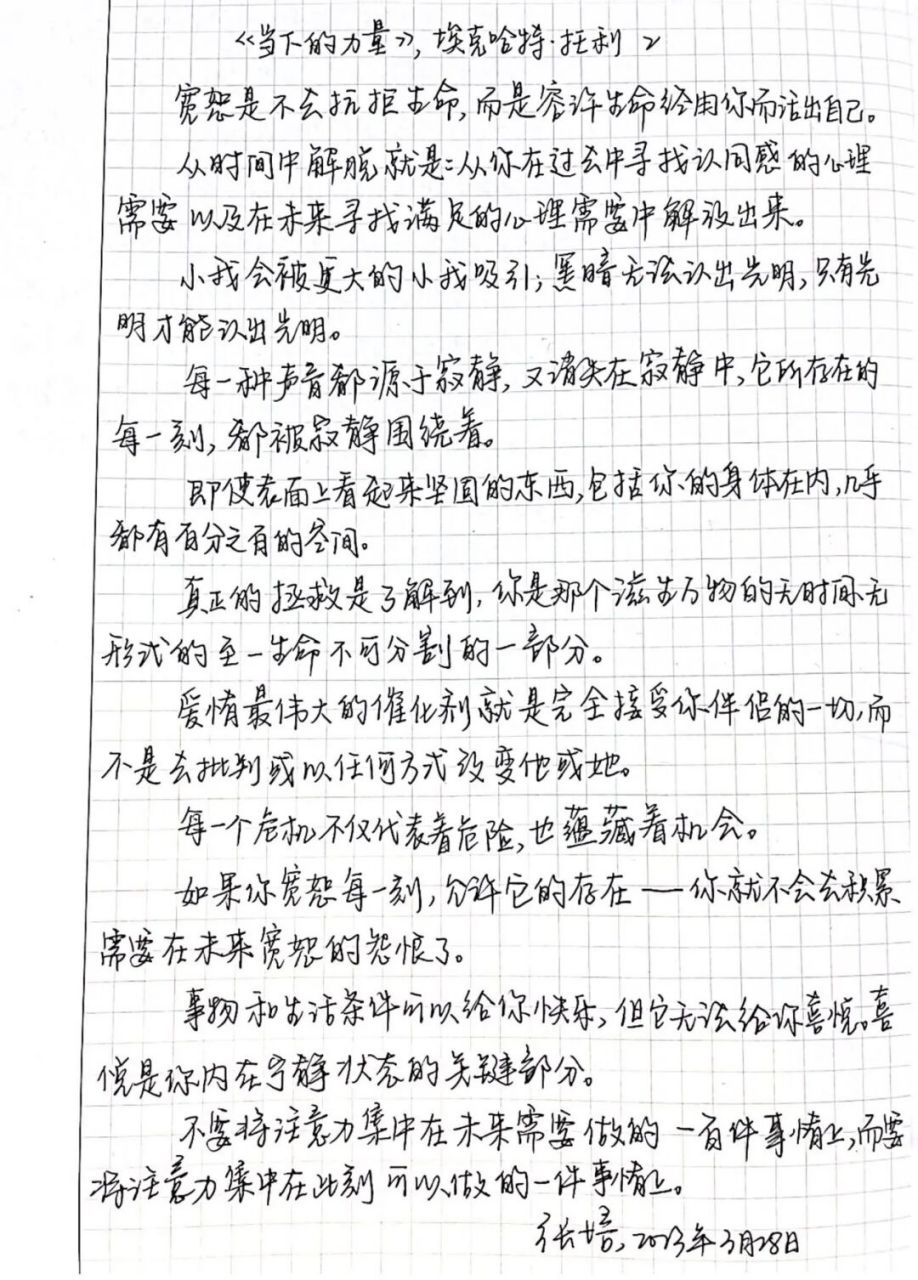 《当下的力量》,埃克哈特·托利 2
宽恕是不去抗拒生命,而是容许生命经由你而活出自己。
从时间中解脱就是:从你在过去中寻找认同感的心理
需要以及在未来寻找满足的心理需要中解放出来。
小我会被更大的小我吸引;黑暗无法认出光明,只有光
明才能认出光明。
每一种声音都源于寂静,又消失在寂静中,它所存在的
每一刻,都被寂静围绕着。
即使表面上看起来坚固的东西,包括你的身体在内,几乎
都有百分之百的空间。
真正的拯救是了解到,你是那个滋生万物的无时间无
形式的至一生命不可分割的一部分。
爱情最伟大的催化剂就是完全接受你伴侣的一切,而
不是去批判或以任何方式改变他或她。
每一个危机不仅代表着危险,也蕴藏着机会。
如果你宽恕每一刻,允许它的存在——你就不会去积累
需要在未来宽恕的怨恨了。
事物和生活条件可以给你快乐,但它无法给你喜悦。喜
悦是你内在宁静状态的关键部分。
不要将注意力集中在未来需要做的一百件事情上,而要
将注意力集中在此刻可以做的一件事情上。
张培,2023年3月28日